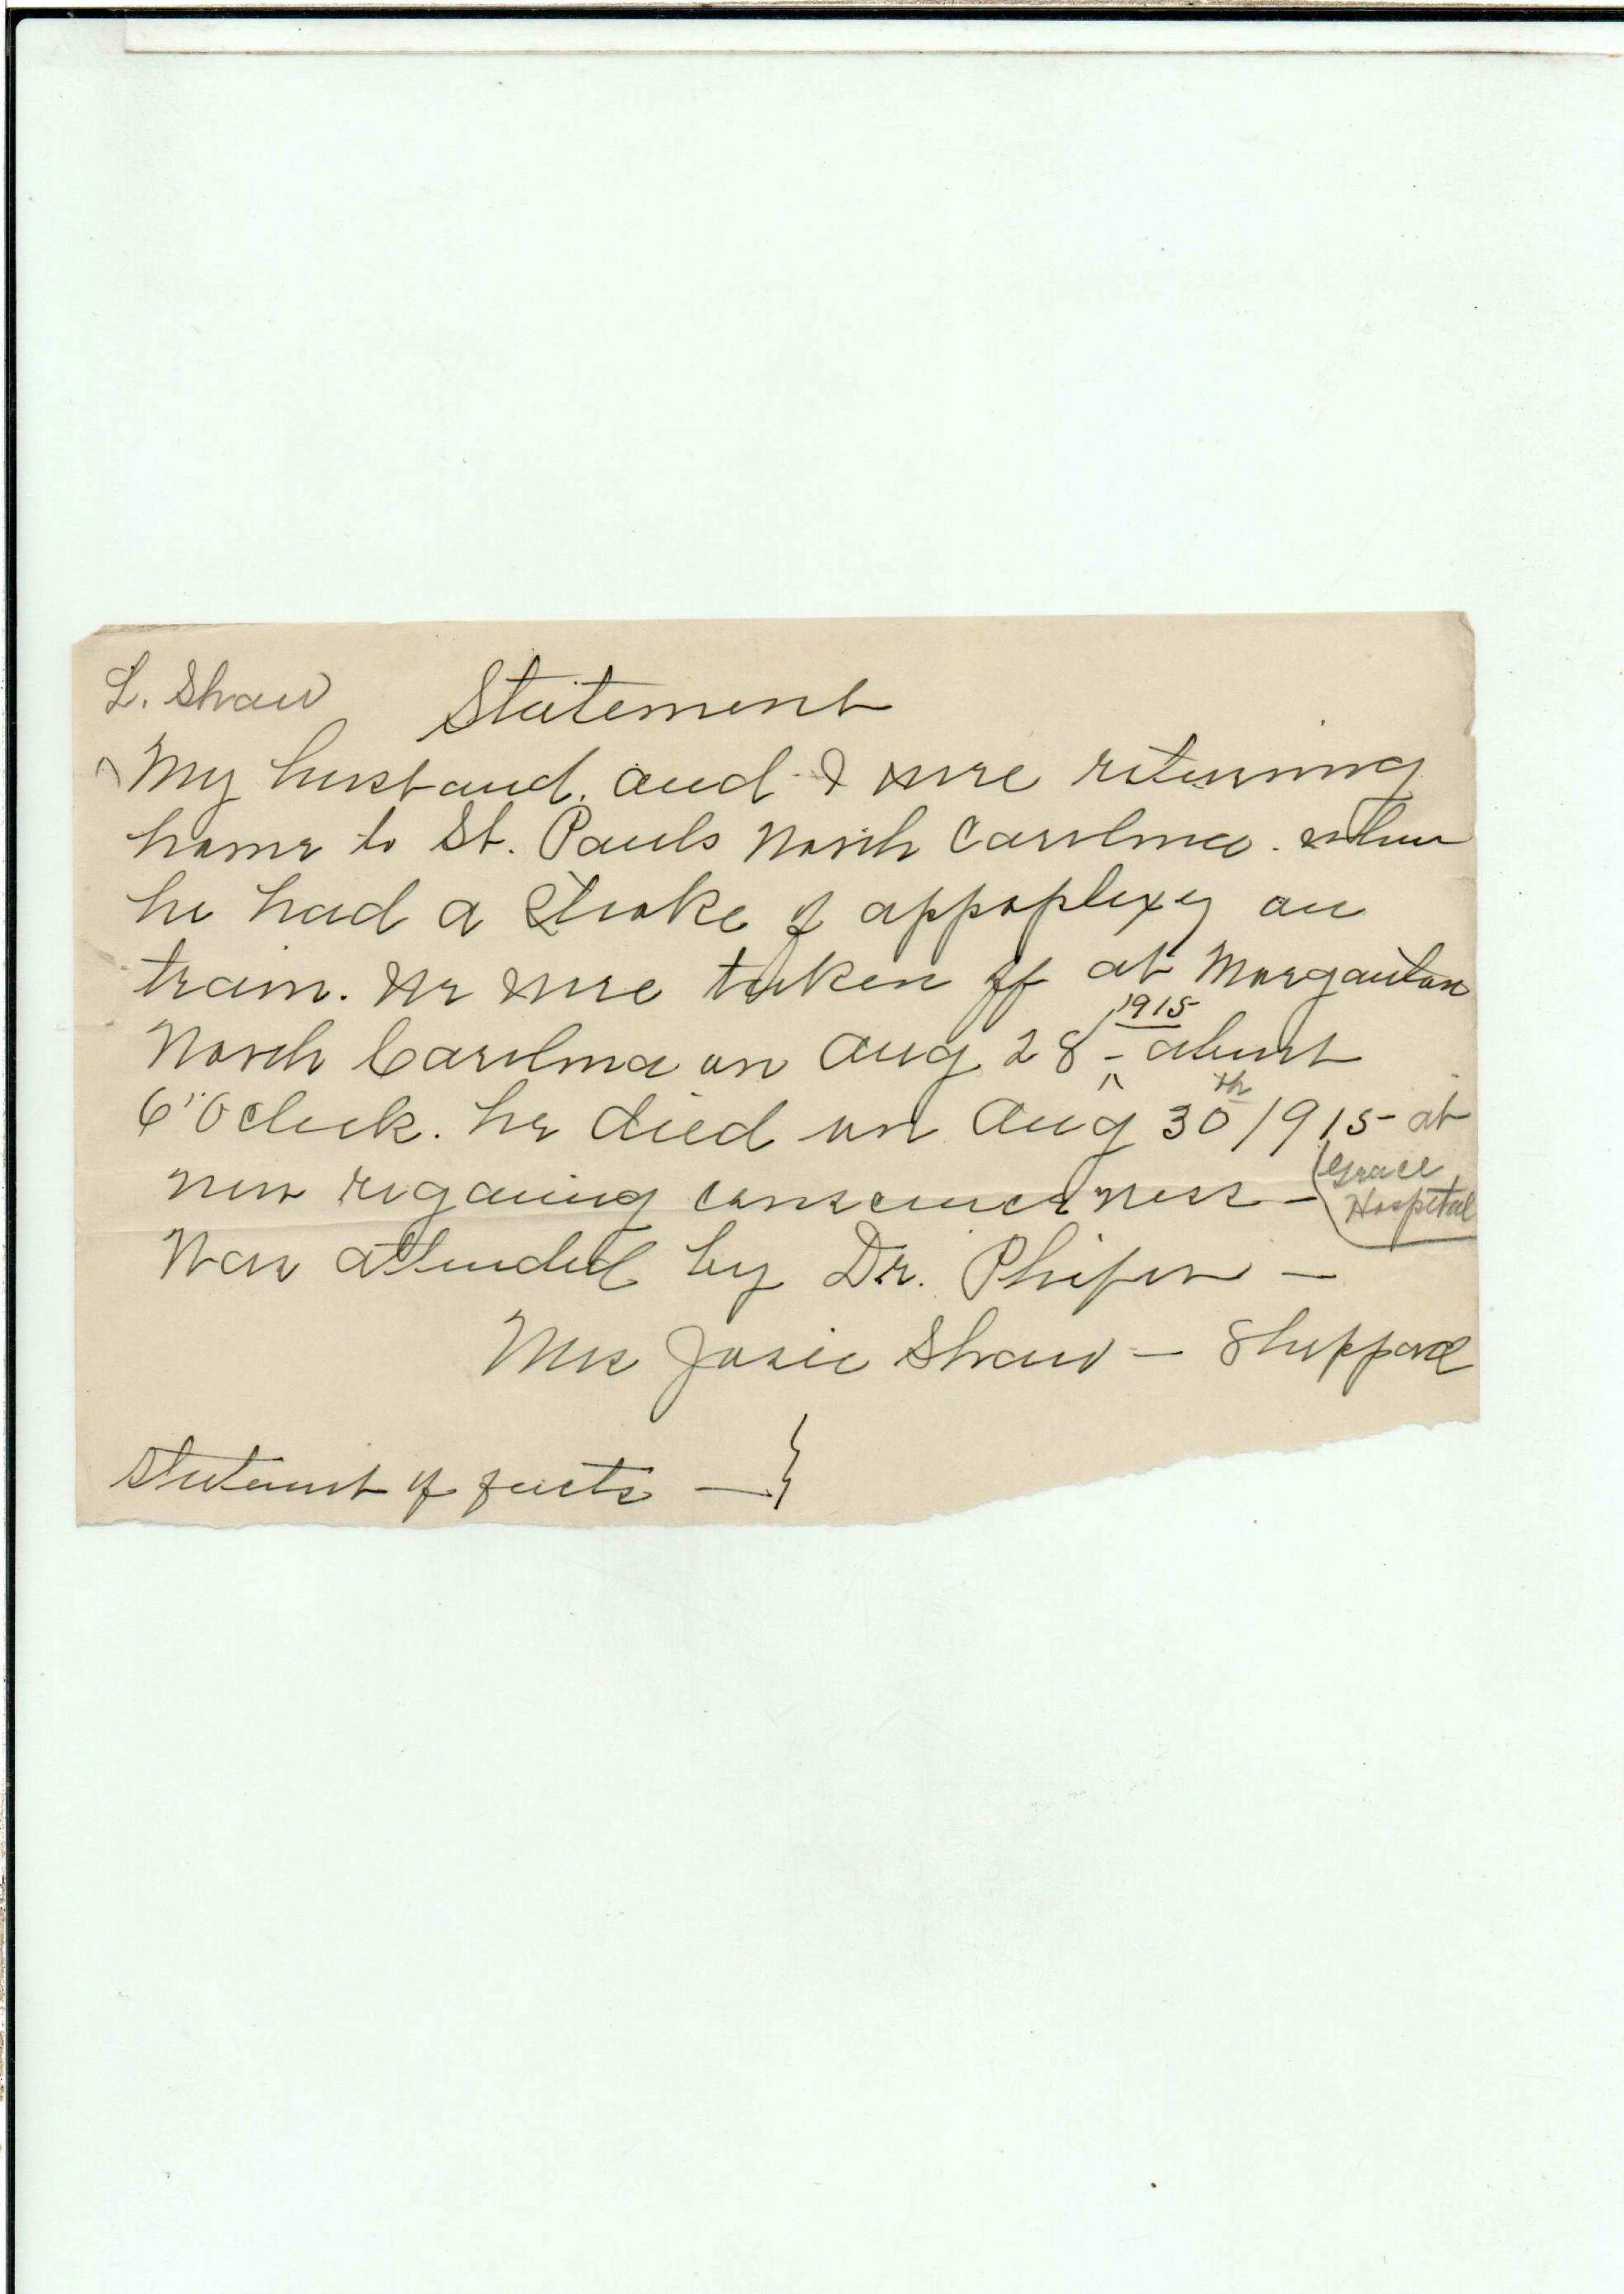 L. Shaw Statement
My husband. and I were returning
home to St. Pauls North Carolina. when
he had a Stroke of appoplexy on
train. We were taken off at Morganton
North Carolina on Aug 28 - 1915 about
6" O clock. he died on Aug 30th 1915 at
(Grace Hospital
regaining consciousness -
Was attended by Dr. Phifer -
Mrs Josie Shaw - Sheppard
Statement of facts - }